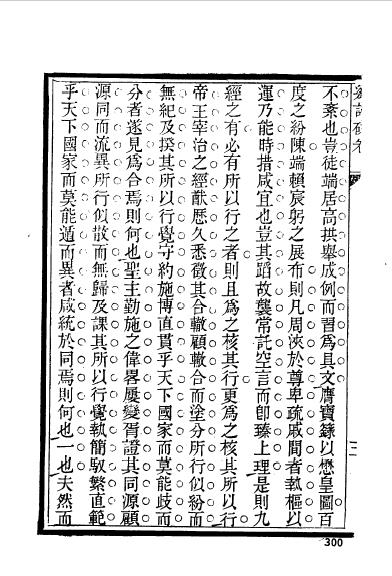 不紊也豈徒端居高拱舉成例而習為具文膺寶籙以懋皇圖百
度之紛陳端賴宸躬之展布則凡周浹於尊卑疏戚間者執樞以
運乃能時措咸宜也豈其蹈故襲常託空言而即臻上理是則九
經之有必有所以行之者則且為之核其行更為之核其所以行
帝王宰治之經猷歷久悉徵其合轍顧轍合而塗分所行似紛而
無紀及揆其所以行覺守約施博直貫乎天下國家而莫能歧而
分者遂見為合焉則何也聖主勤施之偉畧屢變胥證其同源顧
源同而流異所行似散而無歸及課其所以行覺執簡馭繁直範
乎天下國家而莫能遁而異者咸統於同焉則何也一也夫然而
300